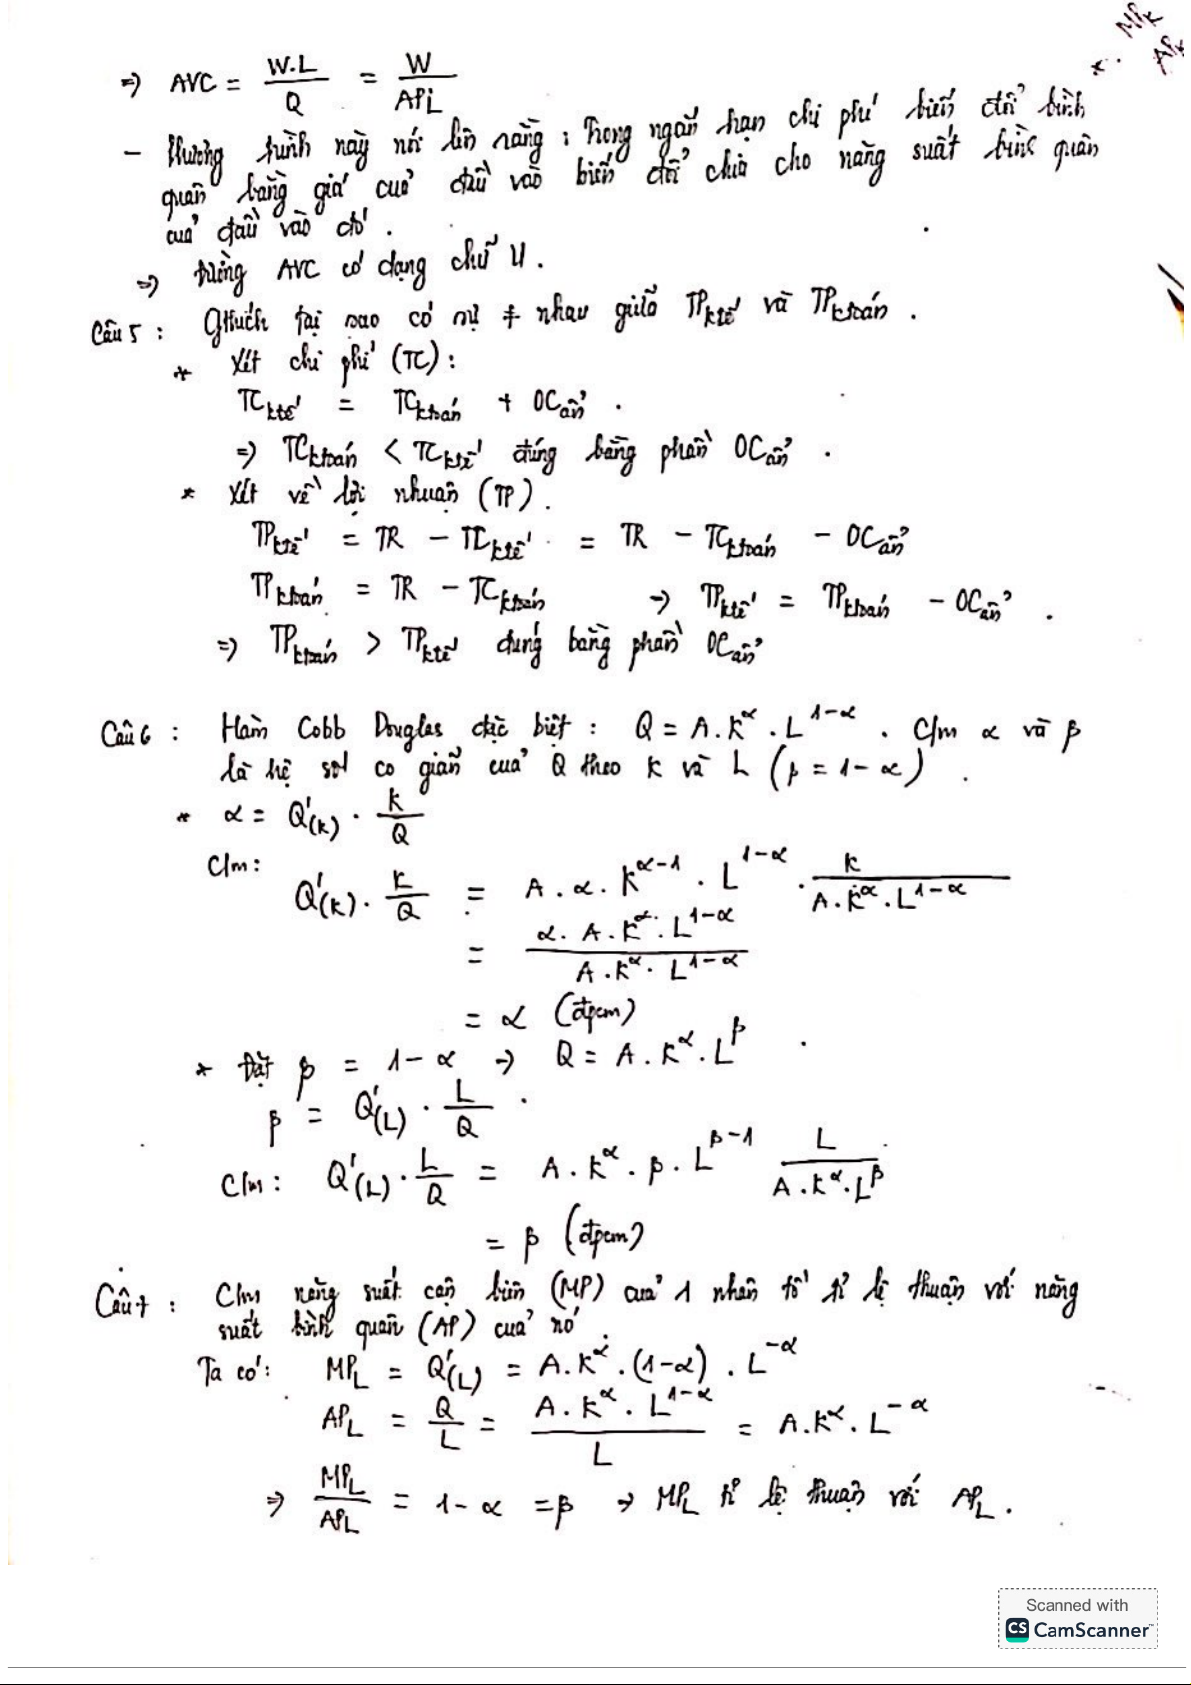 MPK
* . APK
=> AVC = W.L / Q = W / APL
- Phương trình này nói lên rằng : Trong ngắn hạn chi phí biến đổi bình
quân bằng giá của đầu vào biến đổi chia cho năng suất bình quân
của đầu vào đó .
=> đường AVC có dạng chữ U .
Câu 5 : Gthích tại sao có sự ≠ nhau giữa TPktế và TPktoán .
* Xét chi phí (TC) :
TCktế = TCktoán + OCẩn .
=> TCktoán < TCktế đúng bằng phần OCẩn .
* Xét về lợi nhuận (TP) .
TPktế = TR - TCktế = TR - TCktoán - OCẩn
TPktoán = TR - TCktoán -> TPktế = TPktoán - OCẩn .
=> TPktoán > TPktế đúng bằng phần OCẩn
Câu 6 : Hàm Cobb Douglas đặc biệt : Q = A.K^α . L^(1-α) . C/m α và β
là hệ số co giãn của Q theo K và L (β = 1 - α) .
* α = Q'(K) . K / Q
C/m :
Q'(K) . K / Q = A . α . K^(α-1) . L^(1-α) . K / (A . K^α . L^(1-α))
= (α . A . K^α . L^(1-α)) / (A . K^α . L^(1-α))
= α (đpcm)
* Đặt β = 1 - α -> Q = A . K^α . L^β
β = Q'(L) . L / Q .
C/m : Q'(L) . L / Q = A . K^α . β . L^(β-1) L / (A . K^α . L^β)
= β (đpcm)
Câu 7 : C/m năng suất cận biên (MP) của 1 nhân tố tỉ lệ thuận với năng
suất bình quân (AP) của nó .
Ta có : MPL = Q'(L) = A . K^α . (1-α) . L^(-α)
APL = Q / L = (A . K^α . L^(1-α)) / L = A.K^α . L^(-α)
=> MPL / APL = 1 - α = β -> MPL tỉ lệ thuận với APL .
Scanned with
CS CamScanner